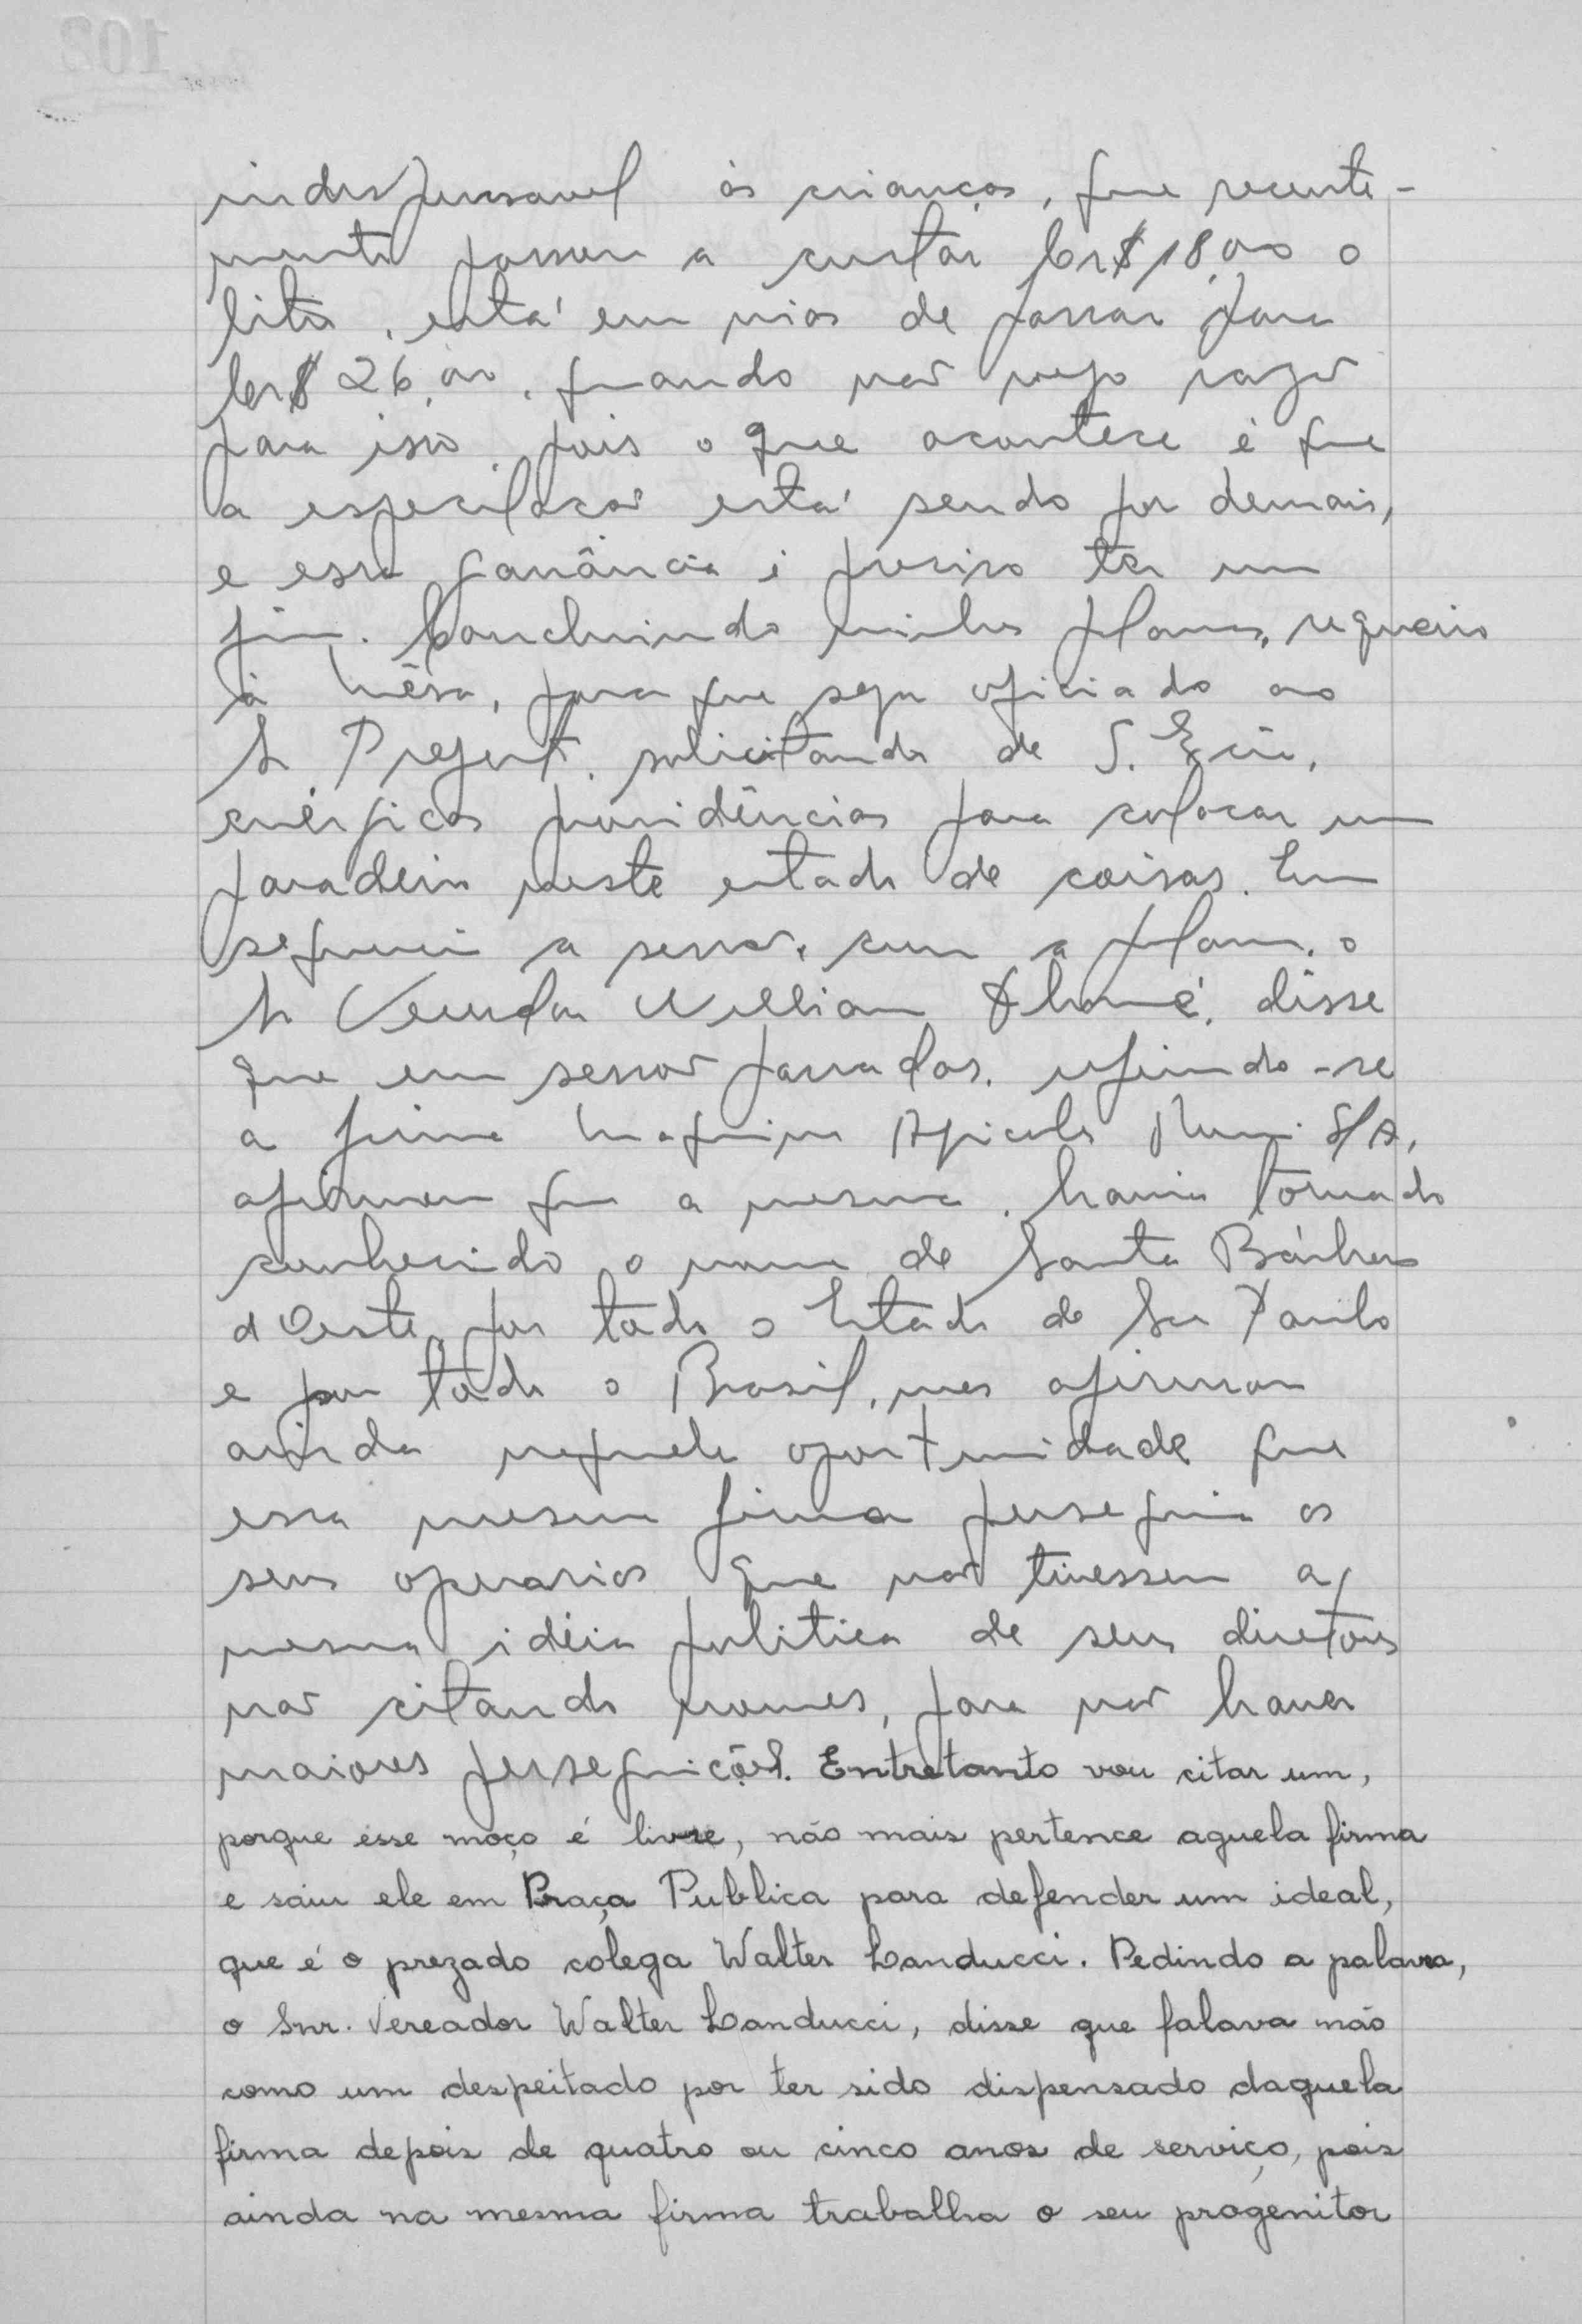 indispensavel ás crianças, que recente-
mente passou a custar Cr$ 18,00 o
litro, está em vias de passar para
Cr$ 26,00, quando não vejo razão
para isso, pois o que acontece é que
a especulação está sendo por demais,
e essa ganância é preciso ter um
fim. Concluindo minhas palavras, requeiro
à Mêsa, para que seja oficiado ao
Sr Prefeito, solicitando de S. Excia,
enérgicas providências para colocar um
paradeiro neste estado de coisas. Em
seguimento a sessão, com a palavra, o
Sr Vereador William Thomé, disse
que em sessão passadas, referindo-se
a firma Maquinas Agricolas Romi S/A,
afirmou que a mesma, havia tornado
conhecido o nome de Santa Bárbara
d'Oeste, por todo o Estado de São Paulo
e por todo o Brasil, mas afirmou
ainda naquela oportunidade que
essa mesma firma perseguia os
seus operarios que não tivessem a
mesma idéia politica de seus diretores
não citando nomes, para não haver
maiores perseguições. Entretanto vou citar um,
porque êsse moço é livre, não mais pertence aquela firma
e saiu ele em Praça Publica para defender um ideal,
que é o prezado colega Walter Landucci. Pedindo a palavra,
o Snr. Vereador Walter Landucci, disse que falava não
como um despeitado por ter sido dispensado daquela
firma depois de quatro ou cinco anos de serviço, pois
ainda na mesma firma trabalha o seu progenitor